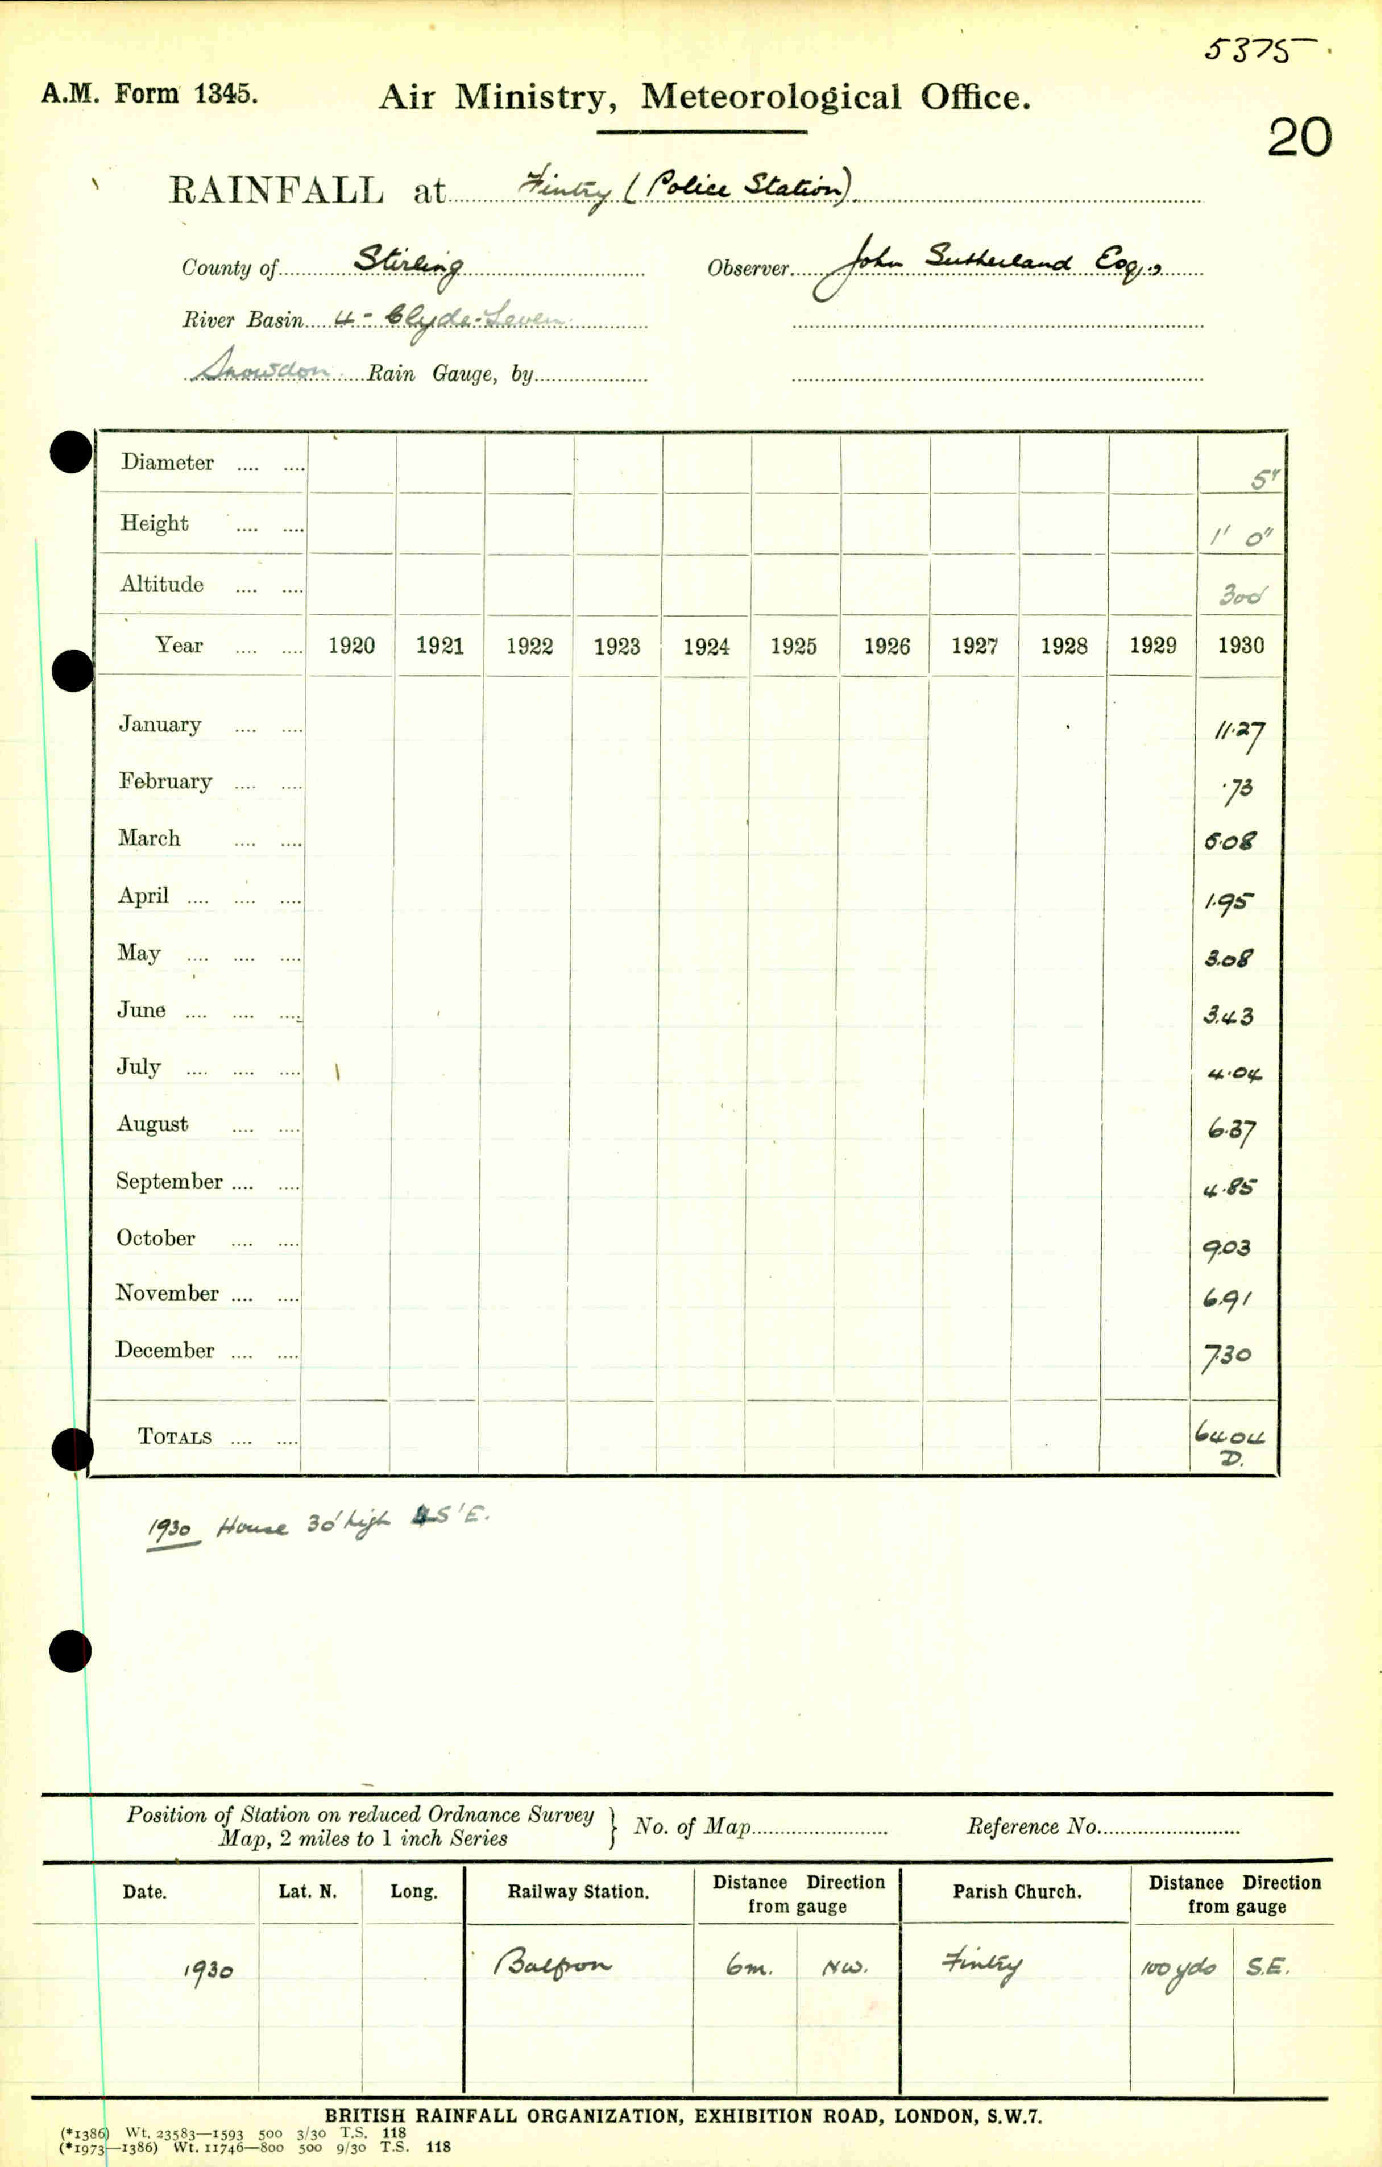 5375
A.M. Form 1345. Air Ministry, Meteorological Office.
20
RAINFALL at Fintry (Police Station).
County of Stirling Observer John Sutherland Esq.,
River Basin 4 - Clyde-Leven
Snowdon Rain Gauge, by
Diameter 5"
Height 1' 0"
Altitude 300'
Year 1920 1921 1922 1923 1924 1925 1926 1927 1928 1929 1930
January 11.27
February .73
March 5.08
April 1.95
May 3.08
June 3.43
July 4.04
August 6.37
September 4.85
October 9.03
November 6.91
December 7.30
TOTALS 64.04
D.
1930 House 30' high E.
Position of Station on reduced Ordnance Survey
Map, 2 miles to 1 inch Series } No. of Map Reference No.
Date. Lat. N. Long. Railway Station. Distance Direction from gauge Parish Church. Distance Direction from gauge
1930 Balfron 6m. NW. Fintry 100 yds S.E.
BRITISH RAINFALL ORGANIZATION, EXHIBITION ROAD, LONDON, S.W.7.
(*1386) Wt. 23583—1593 500 3/30 T.S. 118
(*1973—1386) Wt. 11746—800 500 9/30 T.S. 118